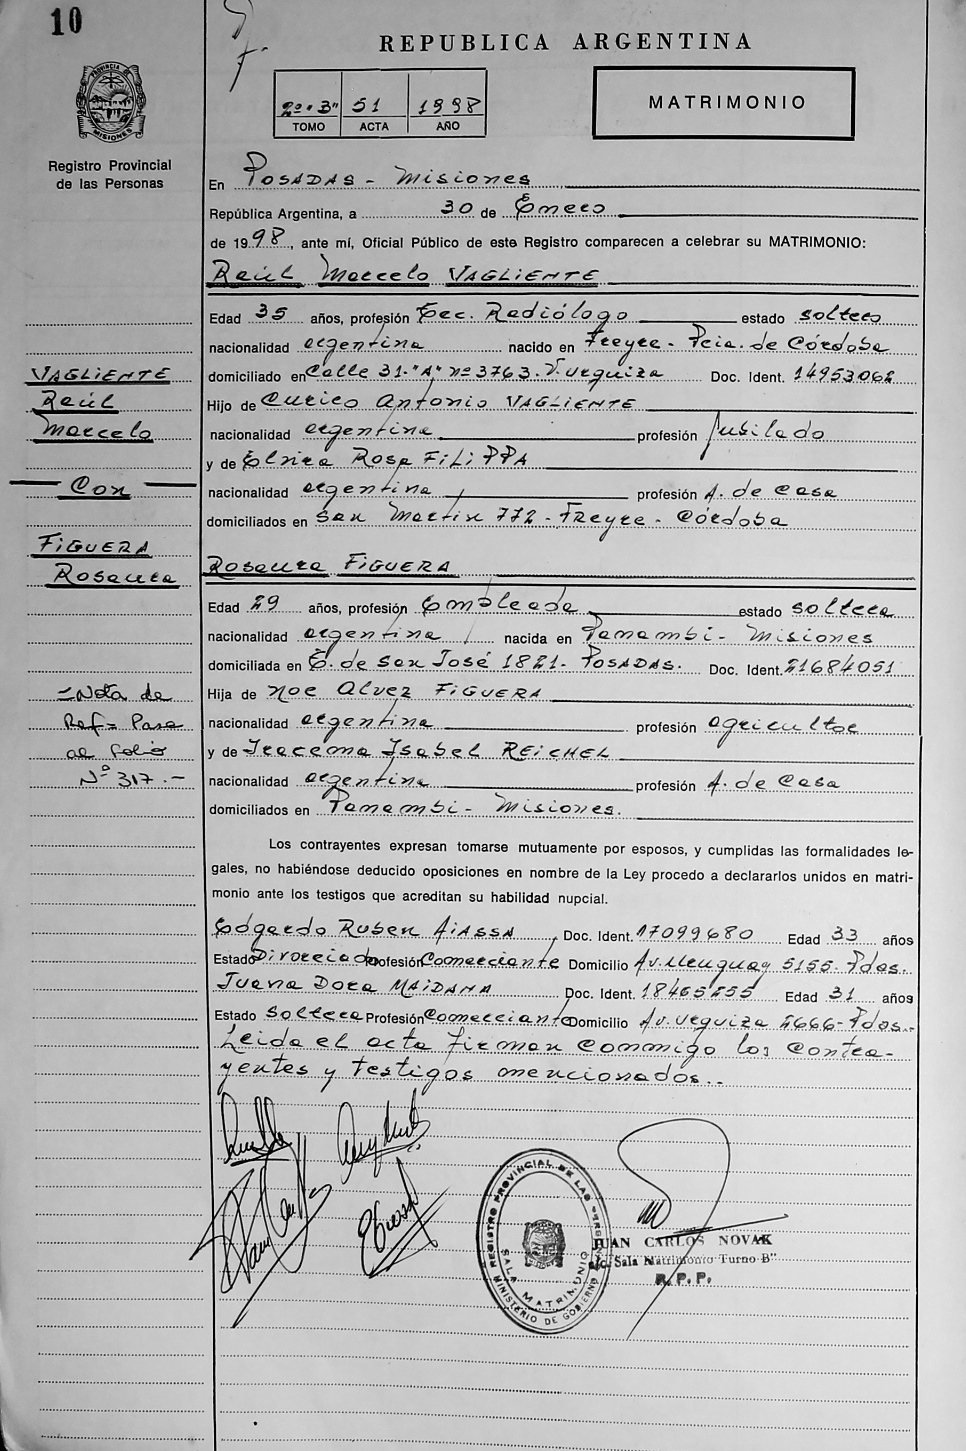 10
REPUBLICA ARGENTINA
2º "3" 51 1998
TOMO ACTA AÑO
MATRIMONIO
PROVINCIA DE MISIONES
Registro Provincial
de las Personas
En POSADAS - Misiones
República Argentina, a 30 de Enero
de 1998, ante mí, Oficial Público de este Registro comparecen a celebrar su MATRIMONIO:
Raúl Marcelo VAGLIENTE
Edad 35 años, profesión Tec. Radiólogo estado soltero
nacionalidad argentina nacido en Freyre - Pcia. de Córdoba
domiciliado en Calle 31 "A" nº 3763. V. urquiza Doc. Ident. 14953062
Hijo de Curico Antonio VAGLIENTE
nacionalidad argentina profesión Jubilado
y de Elvira Rosa FiLiPPA
nacionalidad argentina profesión A. de casa
domiciliados en San Martin 772 - Freyre - Córdoba
Rosaura FIGUERA
Edad 29 años, profesión Empleada estado soltera
nacionalidad argentina nacida en Panambi - Misiones
domiciliada en C. de San José 1821 - POSADAS. Doc. Ident. 21684051
Hija de Noe Alvez FiGUERA
nacionalidad argentina profesión agricultor
y de Iracema Isabel REICHEL
nacionalidad argentina profesión A. de Casa
domiciliados en Panambi - Misiones.
VAGLIENTE
Raúl
Marcelo
Con
FiGUERA
Rosaura
=Nota de
Ref= Pasa
al folio
Nº 317.-
Los contrayentes expresan tomarse mutuamente por esposos, y cumplidas las formalidades le-
gales, no habiéndose deducido oposiciones en nombre de la Ley procedo a declararlos unidos en matri-
monio ante los testigos que acreditan su habilidad nupcial.
Edgardo Ruben AiASSA, Doc. Ident. 17099680 Edad 33 años
Estado Divorciado Profesión Comerciante Domicilio Av. Uruguay 5155. Pdas.
Juana Dora MAIDANA Doc. Ident. 18465255 Edad 31 años
Estado Soltera Profesión Comerciante Domicilio Av. Urquiza 2666 - Pdas.
Leida el acta firman conmigo los contra-
yentes y testigos mencionados..
REGISTRO PROVINCIAL DE LAS PERSONAS
SALA MATRIMONIO
MINISTERIO DE GOBIERNO
JUAN CARLOS NOVAK
a/c. Sala Matrimonio Turno B"
R. P. P.